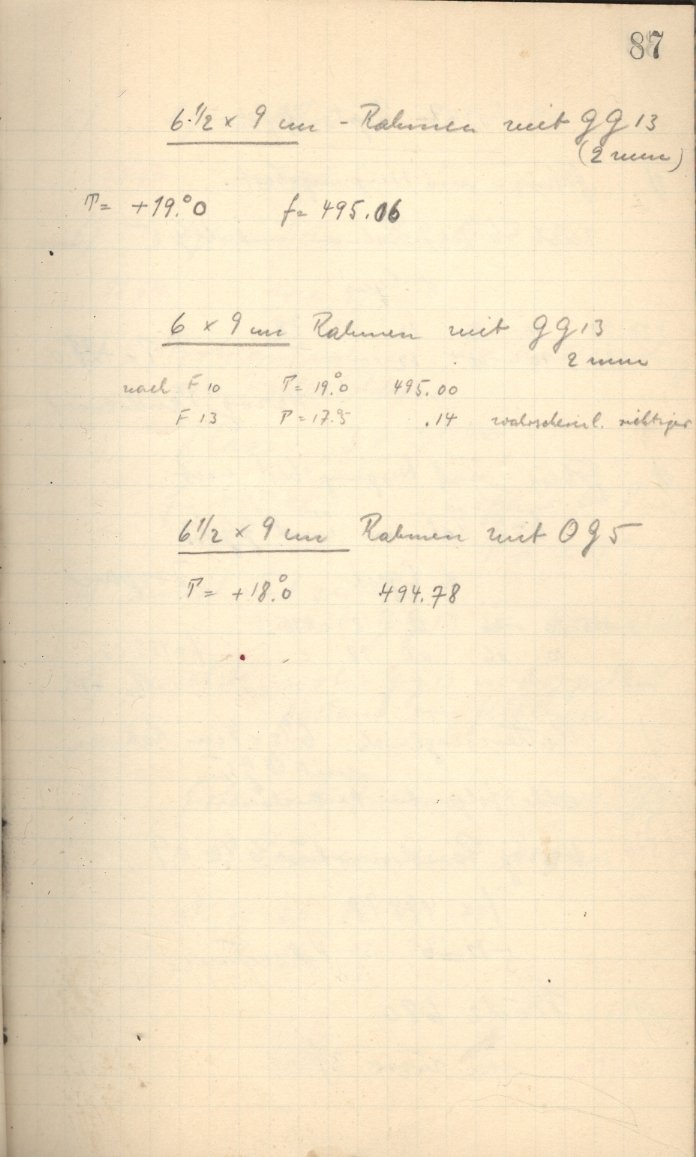 87
6 1/2 x 9 cm - Rahmen mit GG 13
(2 mm)
T = +19.°0 f = 495.06
6 x 9 cm Rahmen mit GG 13
2 mm
nach F 10 T = 19.°0 495.00
F 13 T = 17.°5 .14 wahrscheinl. richtiger
6 1/2 x 9 cm Rahmen mit OG 5
T = +18.°0 494.78